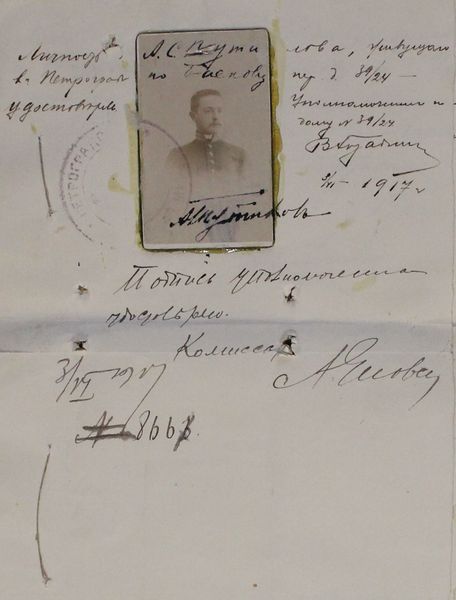 Личность А. С. Пути лова, живущаго
в Петрограде по Баскову пер. д 39/24 —
удостоверяю Уполномоченный
дому № 39/24
1917 г
ПЕТРОГРАД
Подпись уполномоченнаго
удостоверяю.
Комиссар
3/VI 1917
№ 8661.